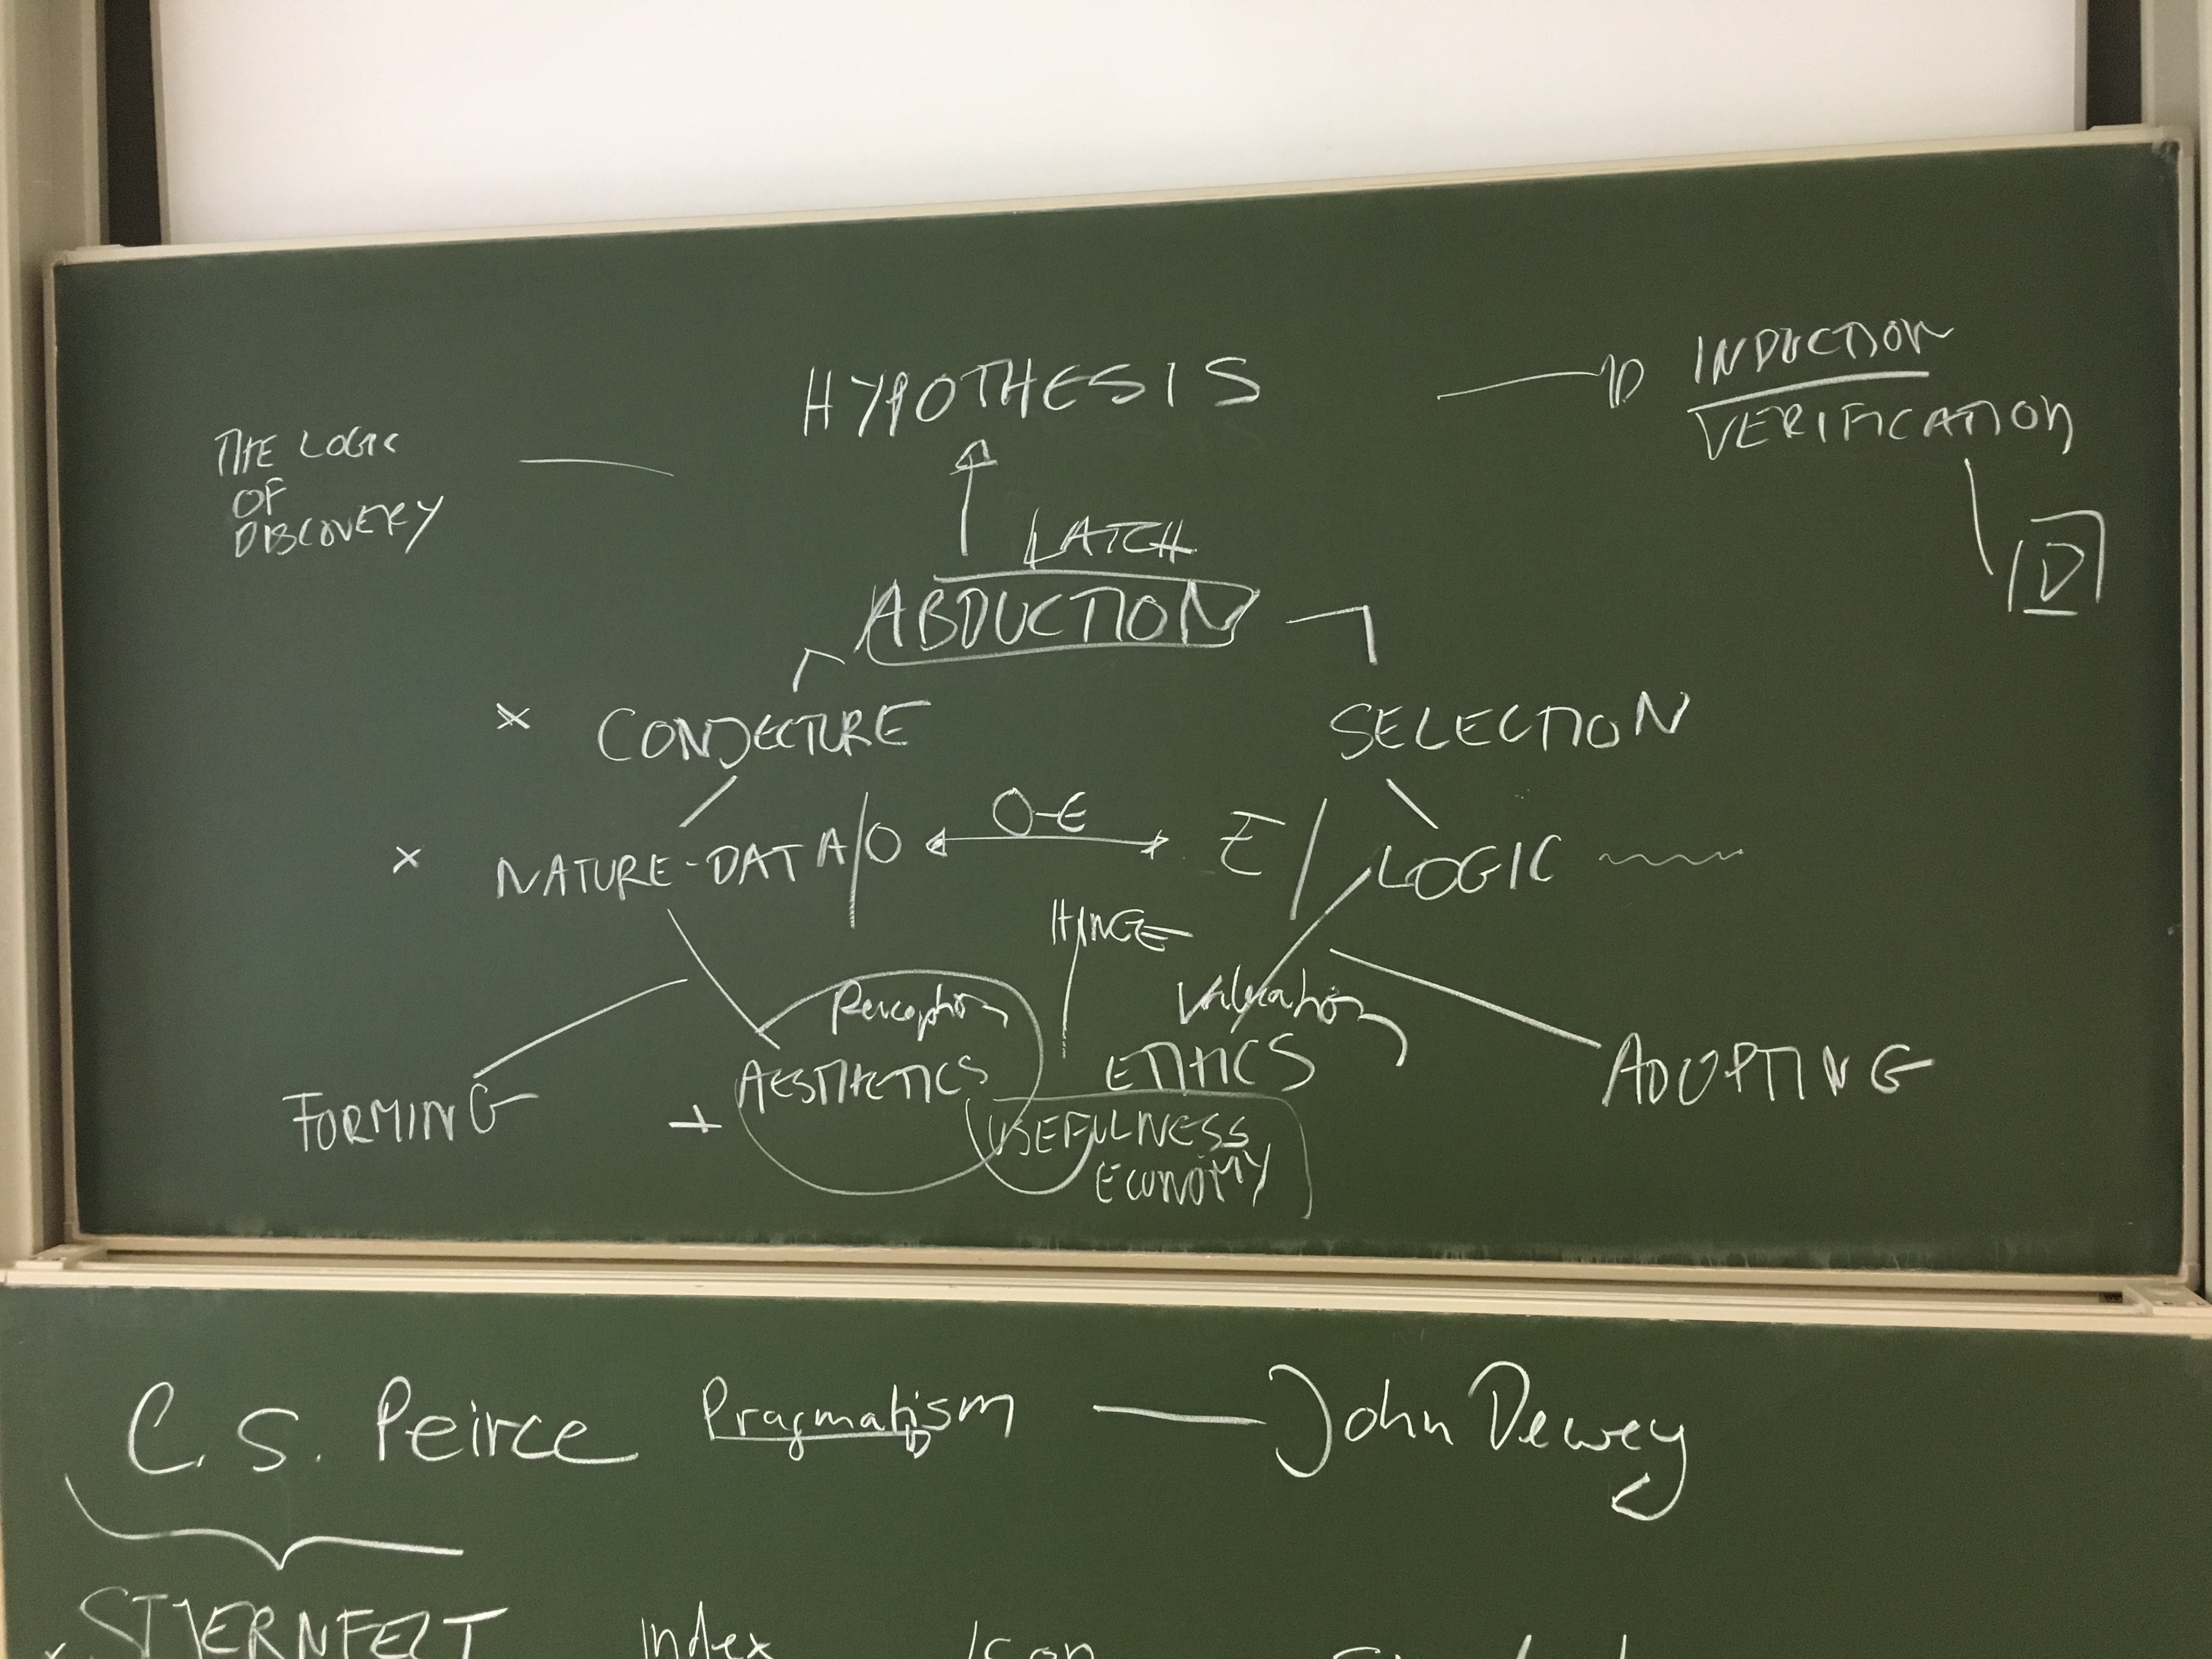 HYPOTHESIS
INDUCTION
VERIFICATION
THE LOGIC
OF
DISCOVERY
D
LATCH
ABDUCTION
× CONJECTURE
SELECTION
× NATURE-DATA/O
O-E
E/LOGIC
HINGE
Perception
Valuation
FORMING
+ AESTHETICS
ETHICS
ADOPTING
USEFULNESS
ECONOMY
C. S. Peirce Pragmatism — John Dewey
STJERNFELT Index Icon